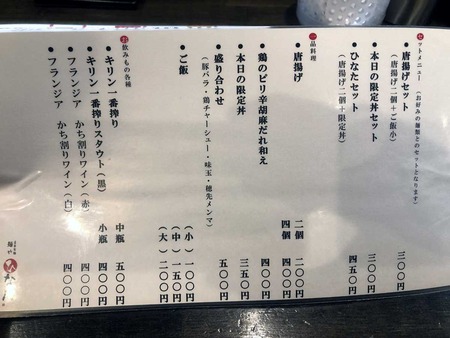 セットメニュー（お好みの麺類とのセットとなります）
・唐揚げセット 三〇〇円
（唐揚げ二個＋ご飯小）
・本日の限定丼セット 三〇〇円
・ひなたセット 四五〇円
（唐揚げ二個＋限定丼）
一品料理
・唐揚げ 二個 二〇〇円
四個 四〇〇円
・鶏のピリ辛胡麻だれ和え 四〇〇円
・本日の限定丼 三五〇円
・盛り合わせ 五〇〇円
（豚バラ・鶏チャーシュー・味玉・穂先メンマ）
・ご飯 （小）一〇〇円
（中）一五〇円
（大）二〇〇円
お飲みもの各種
・キリン一番搾り 中瓶 五〇〇円
・キリン一番搾りスタウト（黒） 小瓶 四〇〇円
・フランジア かち割りワイン（赤） 四〇〇円
・フランジア かち割りワイン（白） 四〇〇円
麺や